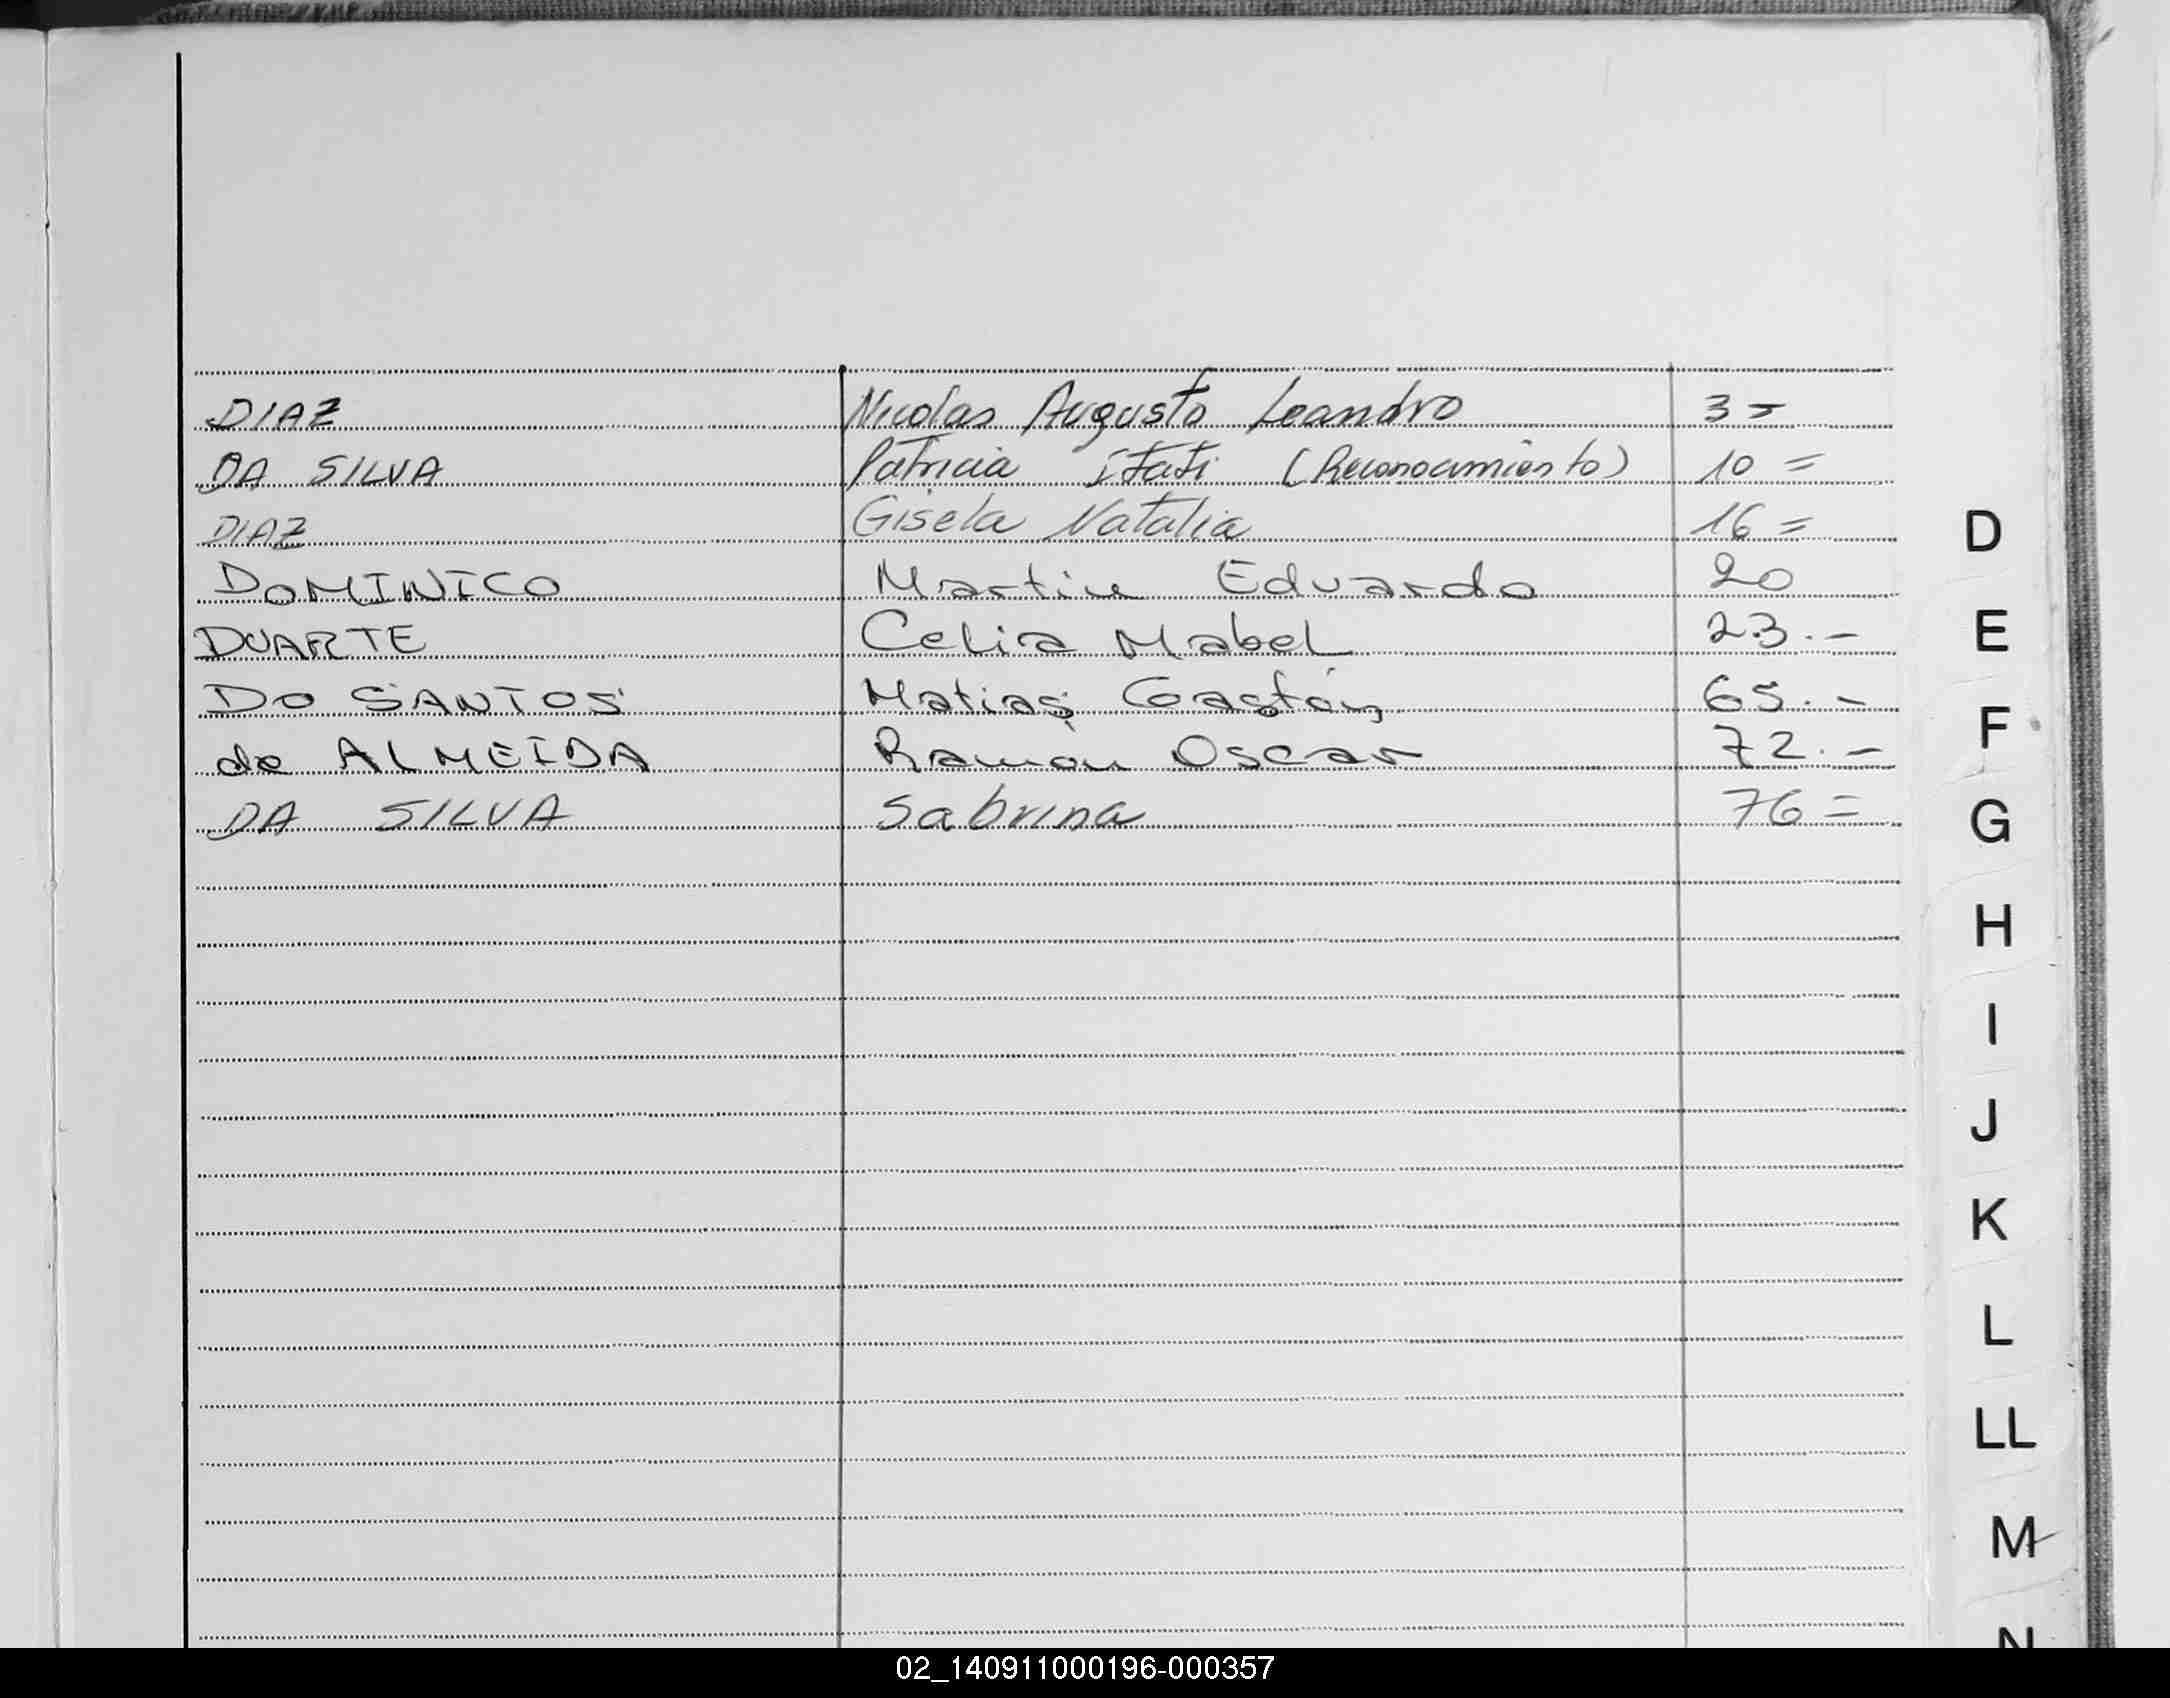 DIAZ Nicolas Augusto Leandro 3 =
DA SILVA Patricia Itati (Reconocimiento) 10 =
DIAZ Gisela Natalia 16 =
DOMINICO Martin Eduardo 20
DUARTE Celia Mabel 23.-
DO SANTOS Matias Gastón 65.-
de ALMEIDA Ramon Oscar 72.-
DA SILVA Sabrina 76 =
D
E
F
G
H
I
J
K
L
LL
M
N
02_140911000196-000357